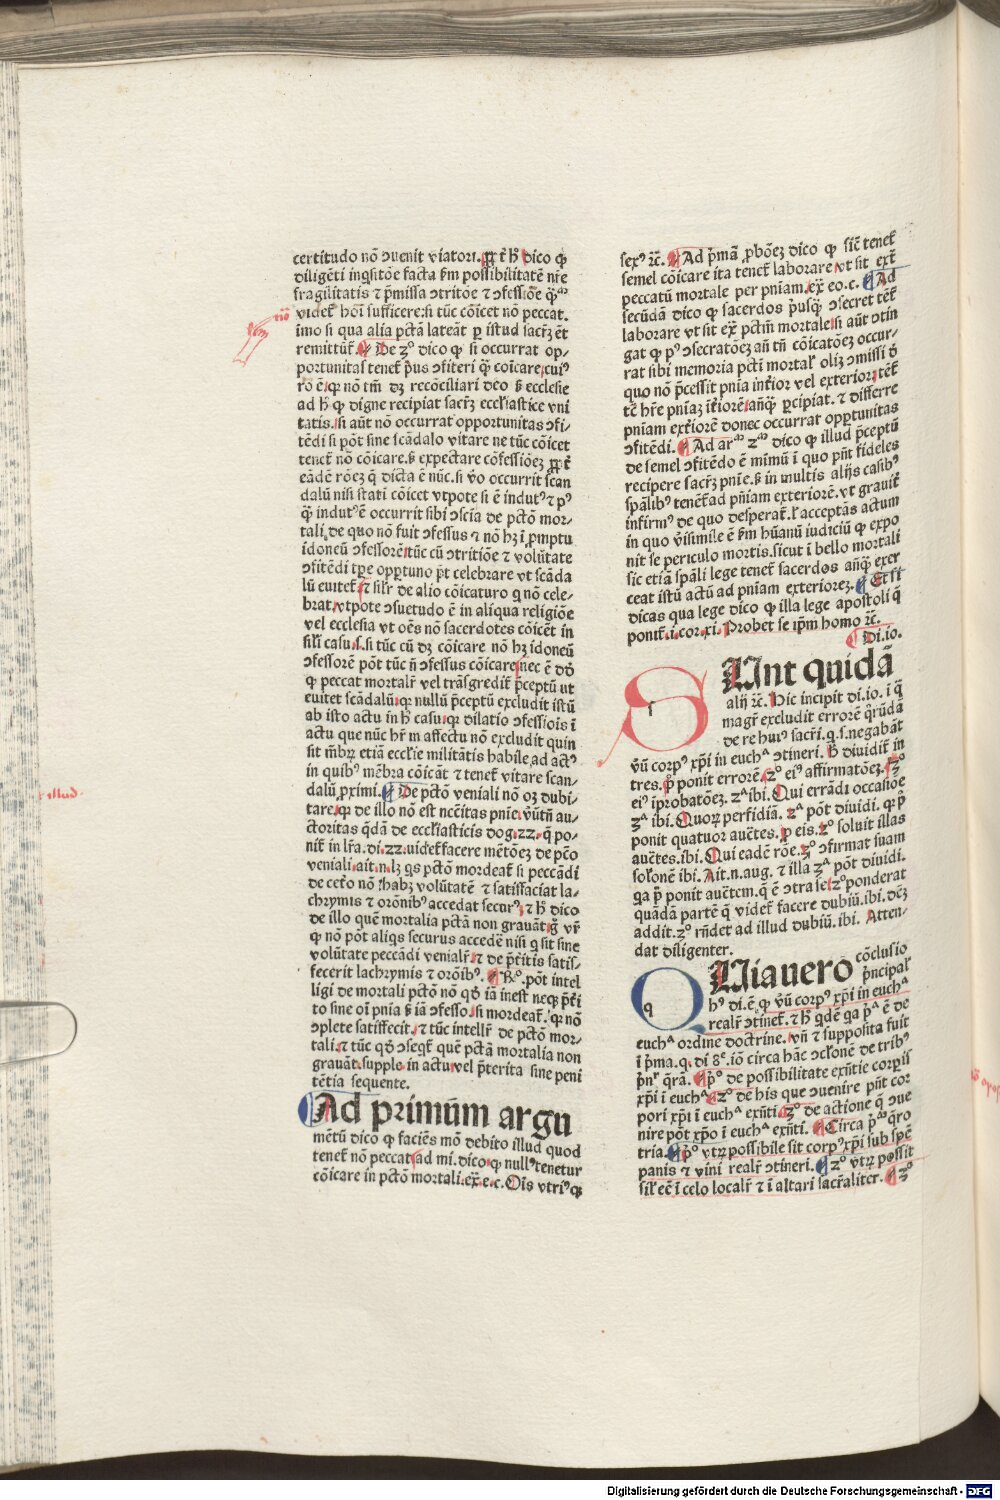 certitudo nō ꝯuenit viatori. ꝓpt̄ hᵒ dico ꝙ
diligēti inq̄sitōe facta ẜm possibilitatē nr̄e
fragilitatis ⁊ p̄missa ↄtritōe ⁊ ↄfessiōe
videt̄ hoī sufficere: si tūc cōicet nō peccat.
īmo si qua alia pctā lateāt per istud sacr̄ꝫ ēt
remittūt̄. De zᵒ dico ꝙ si occurrat op-
portunitas tenet̄ p̄us ↄfiteri q̄ꝫ cōicare, cuiᵒ
rō ē, qꝛ nō tm̄ dꝫ recōciliari deo ß ecclesie
ad hᵒ ꝙ digne recipiat sacr̄ꝫ eccl̄iastice vni
tatis. si aūt nō occurrat opportunitas ↄfi-
tēdi si pōt sine scādalo vitare ne tūc cōicet
tenet̄ nō cōicare. ß expectare cōfessiōeꝫ
eādē rōeꝫ q̄ dicta ē nūc. si v̄o occurrit scan
dalū nisi stati cōicet vtpote si ē indutᵒ ⁊ pᵒ
q̄ꝫ indutᵒ ē occurrit sibi ↄscia de pctō mor-
tali de quo nō fuit ↄfessus ⁊ nō hꝫ ī ꝓmptu
idoneū ↄfessorē, tūc cū ↄtritiōe ⁊ volūtate
ↄfitēdi tꝑe oppertuno p̄t celebrare vt scāda
lū euitet̄. ⁊ sil̄r de alio cōicaturo q nō cele-
brat, vtpote ↄsuetudo ē in aliqua religiōe
vel ecclesia vt oēs nō sacerdotes cōicēt in
sil̄i casu. s. si tūc cū dꝫ cōicare nō hꝫ idoneū
ↄfessorē pōt tūc n̄ ↄfessus cōicare, nec ē dd̄
ꝙ peccat mortalr̄ vel trāsgredit̄ p̄ceptū ut
euitet scādalū, qꝛ nullū p̄ceptū excludit istū
ab isto actu in hᵒ casu, qꝛ dilatio ↄfessiois ī
actu que nūc hr̄ ī affectu nō excludit quin
sit mb̄ꝝ etiā eccl̄ie militātis habile ad actᵒ
in quibᵒ mēbra cōicāt ⁊ tenet̄ vitare scan-
dalū ꝓximi. De pctō veniali nō oꝫ dubi-
tare, qꝛ de illo nō est nec̄itas pnie. vn̄ au-
ctoritas q̄dā de eccl̄iasticis dog. zz. q̄ po-
nit̄ in lr̄a. di. zz. uidet̄ facere mētōeꝫ de pctō
veniali. ait. n. lꝫ qs pctō mordeat̄ si peccādi
de cet̄o nō habꝫ volūtatē ⁊ satisfaciat la-
chrymis ⁊ orōnibᵒ accedat securᵒ, ⁊ hᵒ dico
de illo quē mortalia pctā non grauāt, ḡ vr̄
ꝙ nō pōt aliqs securus accedē nisi q sit sine
volūtate peccādi venialr̄, ⁊ de p̄t̄itis satis-
fecerit lachrymis ⁊ orōibᵒ. R̄ᵒ. pōt intel
ligi de mortali pctō nō qd̄ iā inest neqꝫ p̄t̄i
to sine oī pnia ß iā ↄfesso, si mordeat̄. qꝛ nō
ↄplete satisfecit, ⁊ tūc intellr̄ de pctō mor-
tali, ⁊ tūc qd̄ ↄseqt̄ quē pctā mortalia non
grauāt, supple, in actu, vel p̄terita sine peni
tētia sequente.
Ad primūm argu
mētū dico ꝙ faciēs mō debito illud quod
tenet̄ nō peccat, ad mi. dico, ꝙ nullᵒ tenetur
cōicare in pctō mortali. ex̄. e. c. Oīs vtriᵒqꝫ
sexᵒ ⁊c̄. Ad p̄mā ꝓbōeꝫ dico ꝙ sic̄ tenet̄
semel cōicare ita tenet̄ laborare, vt sit ext̄
peccatū mortale per pniam. ex̄ eo. c. Ad
secūdam dico ꝙ sacerdos p̄usqꝫ ↄsecret tēt̄
laborare vt sit ex̄ pctm̄ mortale, si aūt ↄtin
gat ꝙ pᵒ ↄsecratōeꝫ an̄ tn̄ cōicatōeꝫ occur-
rat sibi memoria pctī mortal̄ oliꝫ ↄmissi d̄
quo nō p̄cessit pnia int̄ior vel exterior, tēt̄
tc̄ hr̄e pniaꝫ īt̄iorē, an̄qꝫ percipiat. ⁊ differre
pniam ext̄iorē donec occurrat oppertunitas
ↄfitēdi. Ad arᵐ zᵐ dico ꝙ illud p̄ceptū
de semel ↄfitēdo ē mīmū ī quo pn̄t fideles
recipere sacr̄ꝫ pnie. ß in multis alijs casibᵒ
sp̄alibᵒ tenēt̄ ad pn̄iam exteriorē. vt grauit̄
infirmᵒ de quo desperat̄. l̄ acceptās actum
in quo v̄isimile ē ẜm hūanū iudiciū ꝙ expo
nit se periculo mortis. sicut ī bello mortali
sic etiā sp̄ali lege tenet̄ sacerdos an̄qꝫ exer
ceat istū actū ad pn̄iam exterioreꝫ. Et si
dicas qua lege dico ꝙ illa lege apostoli q̄
ponit̄. i. cor. xi. Probet se ip̄m homo ⁊c̄.
Di. io.
SUnt quidā
alij ⁊c̄. Hic incipit di. io. ī q̄
magr̄ excludit errorē q̄rūdā
de re huiᵒ sacr̄i. q. s. negabāt
v̄ū corpᵒ xp̄i in euchᵃ ↄtineri. hᵒ diuidit̄ in
tres. pᵒ ponit errorē. zᵒ eiᵒ affirmatōeꝫ. 3ᵒ
eiᵒ īprobatōeꝫ. zᵃ ibi. Qui errādi occasiōe
3ᵃ ibi. Quoꝝ perfidiā. zᵃ pōt diuidi. qꝛ pᵒ
ponit quatuor auc̄tes. ꝓ eis. zᵒ soluit illas
auc̄tes. ibi. Qui eadē rōe. zᵒ ↄfirmat suam
sol̄onē ibi. Ait. n. aug. ⁊ illa 3ᵃ pōt diuidi.
qa pᵒ ponit auc̄tem. q̄ ē ↄtra se. zᵒ ponderat
quādā partē q̄ videt̄ facere dubiū. ibi. dēꝫ
addit. zᵒ rn̄det ad illud dubiū. ibi. Atten-
dat diligenter.
QUia uero cōclusio
p̄ncipal̄
hᵒ di. ē. ꝙ v̄ū corpᵒ xp̄i in euchᵃ
realr̄ ↄtinet̄. ⁊ hᵒ qdē qa pᵃ ē de
euchᵃ ordine doctrine. vn̄ ⁊ supposita fuit
ī p̄ma. q. di 8ᵉ. iō circa hāc ↄclonē de tribᵒ
p̄nr̄ q̄rā. pᵒ de possibilitate exn̄tie corꝑis
xp̄i ī euchᵃ. zᵒ de his que ↄuenire pn̄t cor
pori xp̄i ī euchᵃ exn̄ti. 3ᵒ de actione q̄ ↄue
nire pōt xp̄o ī euchᵃ exn̄ti. Circa pᵐ q̄ro
tria. pᵒ vtꝝ possibile sit corpᵒ xp̄i sub sp̄ē
panis ⁊ vini realr̄ ↄtineri. zᵒ vtꝝ possit
sil̄ eē ī celo localr̄ ⁊ ī altari sacr̄aliter. 3ᵒ
illud
Digitalisierung gefördert durch die Deutsche Forschungsgemeinschaft - DFG